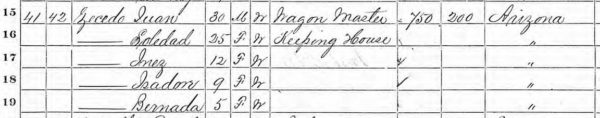 15 41 42 Zecedo Juan 30 M W Wagon Master 750 200 Arizona
16 —— Soledad 25 F W Keeping House "
17 —— Inez 12 F W "
18 —— Isadon 9 F W "
19 —— Bernada 5 F W "